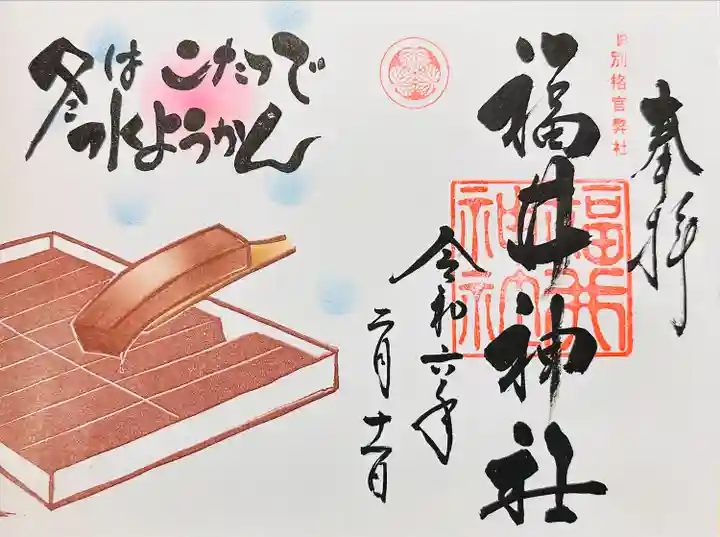 奉拝
旧別格官幣社
福井神社
福井
神社
令和六年
二月十一日
冬は こたつで
水ようかん